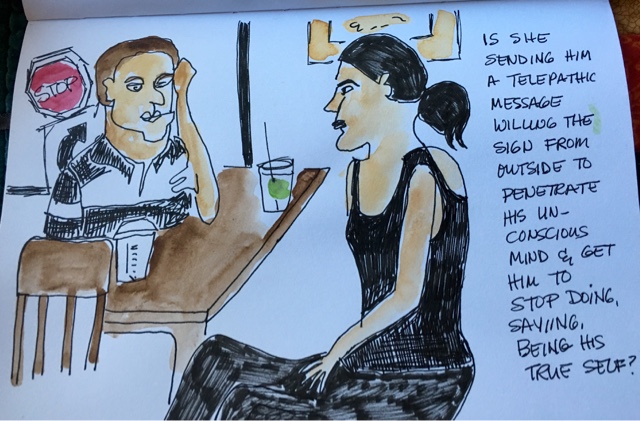 STOP
IS SHE
SENDING HIM
A TELEPATHIC
MESSAGE
WILLING THE
SIGN FROM
OUTSIDE TO
PENETRATE
HIS UN-
CONSCIOUS
MIND & GET
HIM TO
STOP DOING,
SAYIING,
BEING HIS
TRUE SELF?